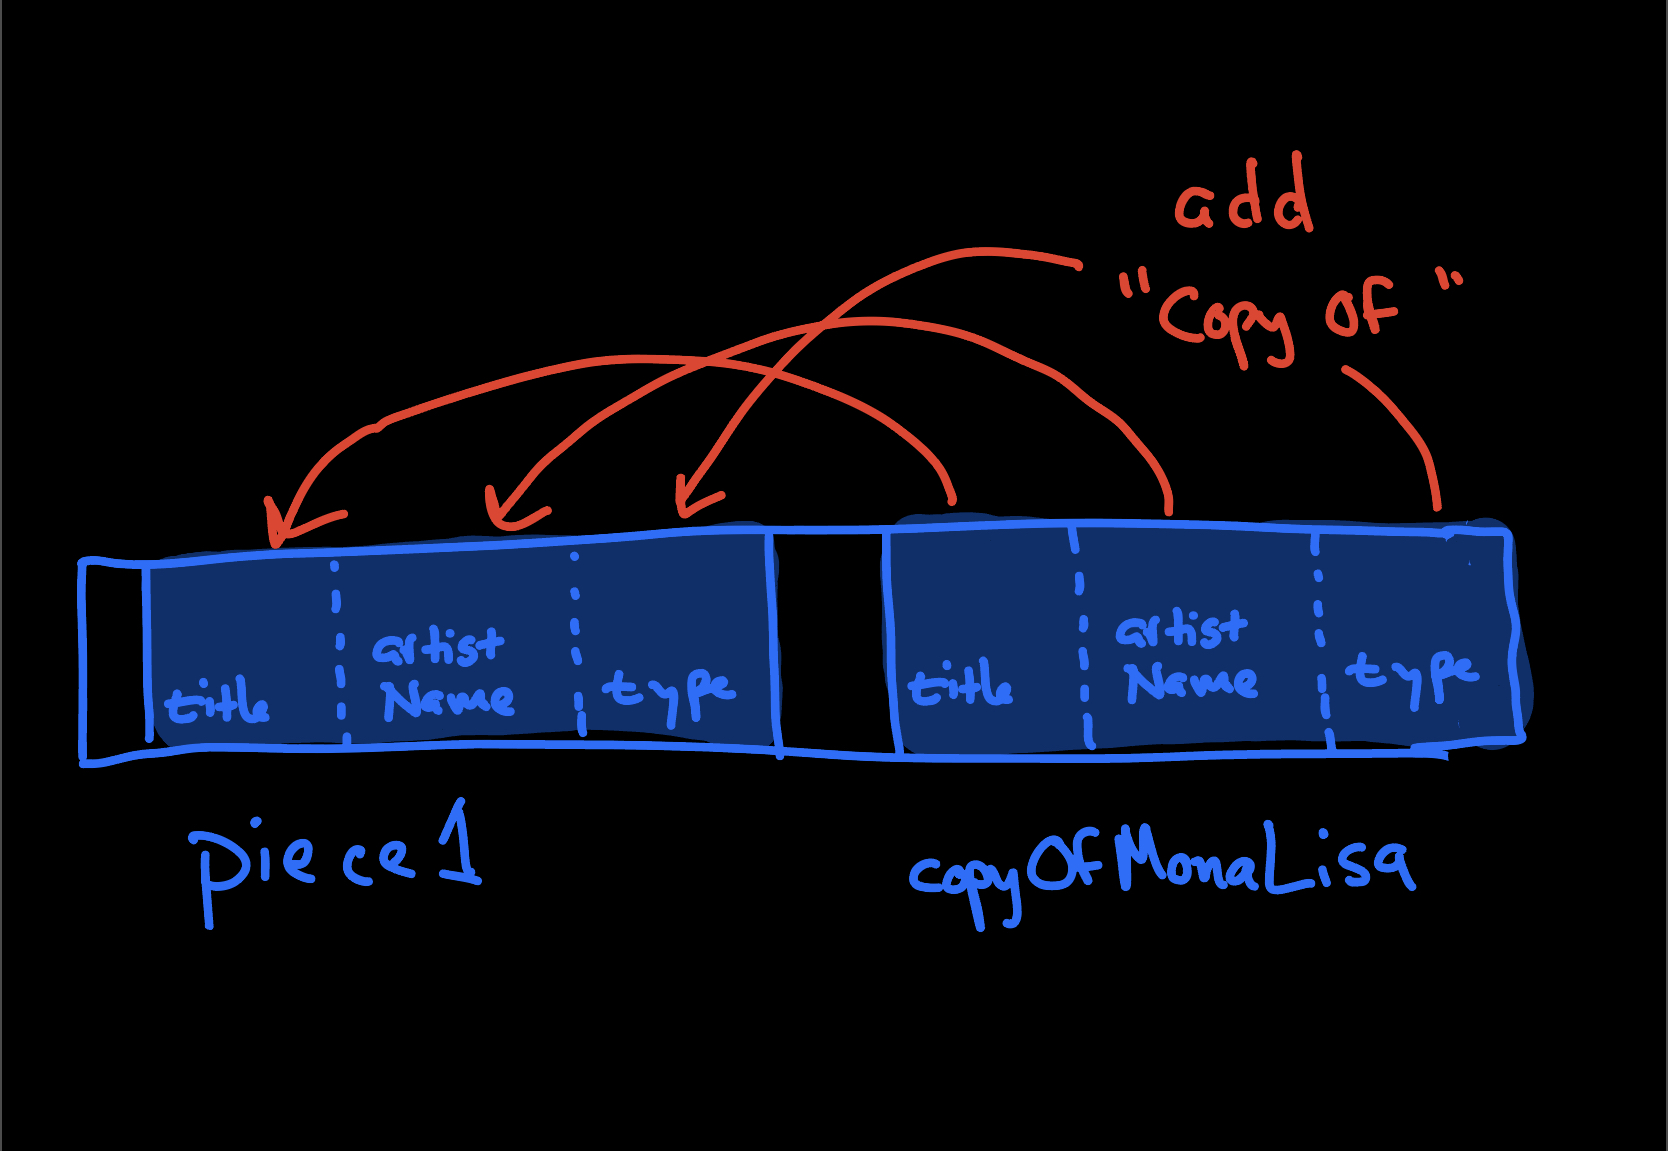 add
"Copy Of "
title
artist
Name
type
title
artist
Name
type
piece1
copyOfMonaLisa